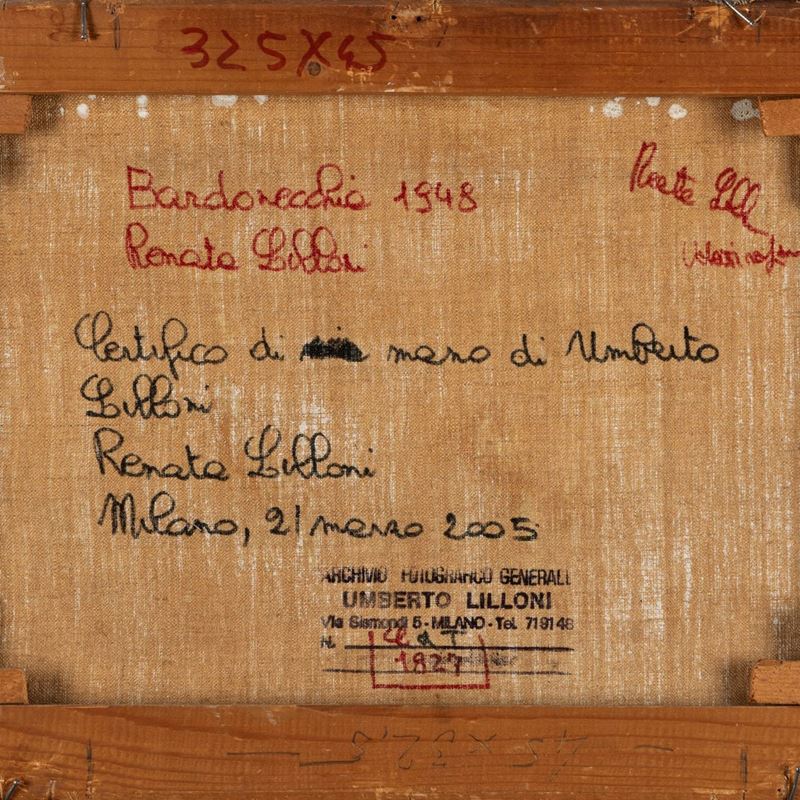 325X45
Bardonecchia 1948
Renata Lilloni
Certifico di mano di Umberto
Lilloni
Renata Lilloni
Milano, 21 marzo 2005
ARCHIVIO FOTOGRAFICO GENERALE
UMBERTO LILLONI
Via Sismondi 5 - MILANO - Tel. 719148
N. Cat
1827
45 x 32,5